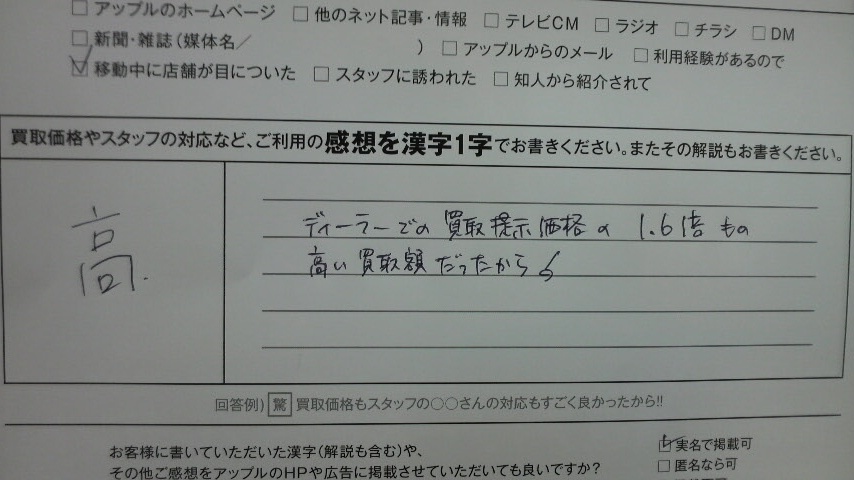 □ アップルのホームページ □ 他のネット記事・情報 □ テレビCM □ ラジオ □ チラシ □ DM
□ 新聞・雑誌(媒体名/ ) □ アップルからのメール □ 利用経験があるので
☑ 移動中に店舗が目についた □ スタッフに誘われた □ 知人から紹介されて
買取価格やスタッフの対応など、ご利用の感想を漢字1字でお書きください。またその解説もお書きください。
高
ディーラーでの買取提示価格の1.6倍もの
高い買取額だったから。
回答例) 驚 買取価格もスタッフの○○さんの対応もすごく良かったから!!
お客様に書いていただいた漢字(解説も含む)や、
その他ご感想をアップルのHPや広告に掲載させていただいても良いですか?
☑ 実名で掲載可
□ 匿名なら可